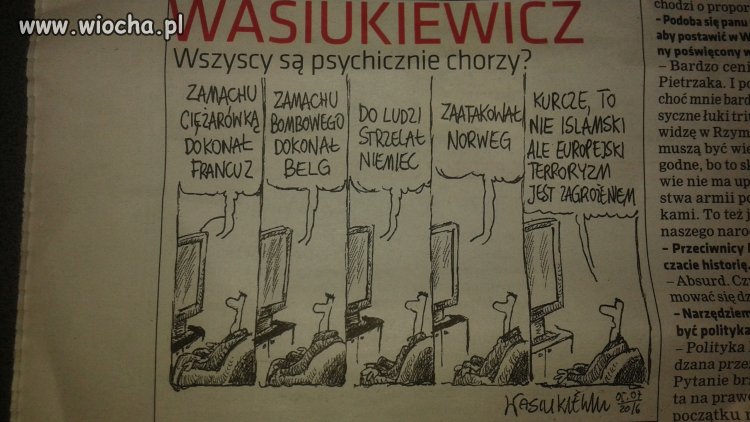 www.wiocha.pl
WASIUKIEWICZ
Wszyscy są psychicznie chorzy?
ZAMACHU
CIĘŻARÓWKĄ
DOKONAŁ
FRANCUZ
ZAMACHU
BOMBOWEGO
DOKONAŁ
BELG
DO LUDZI
STRZELAŁ
NIEMIEC
ZAATAKOWAŁ
NORWEG
KURCZE, TO
NIE ISLAMSKI
ALE EUROPEJSKI
TERRORYZM
JEST ZAGROŻENIEM
2016
chodzi o propor
– Podoba się panu
aby postawić w W
ny poświęcony w
– Bardzo ceni
Pietrzaka. I po
choć mnie bard
syczne łuki tri
widzę w Rzym
muszą być wie
godne, bo to sk
wie nie ma up
stwa armii po
kami. To też j
naszego naro
– Przeciwnicy
czacie historię.
– Absurd. Cz
mować się dz
– Narzędziem
być polityka
– Polityka
dzana prze
Pytanie brz
ta na prawo
początku